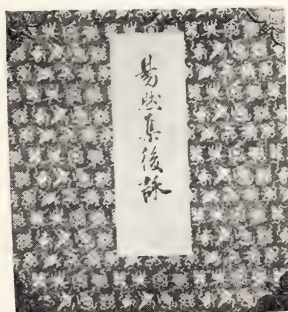 易然集後詠